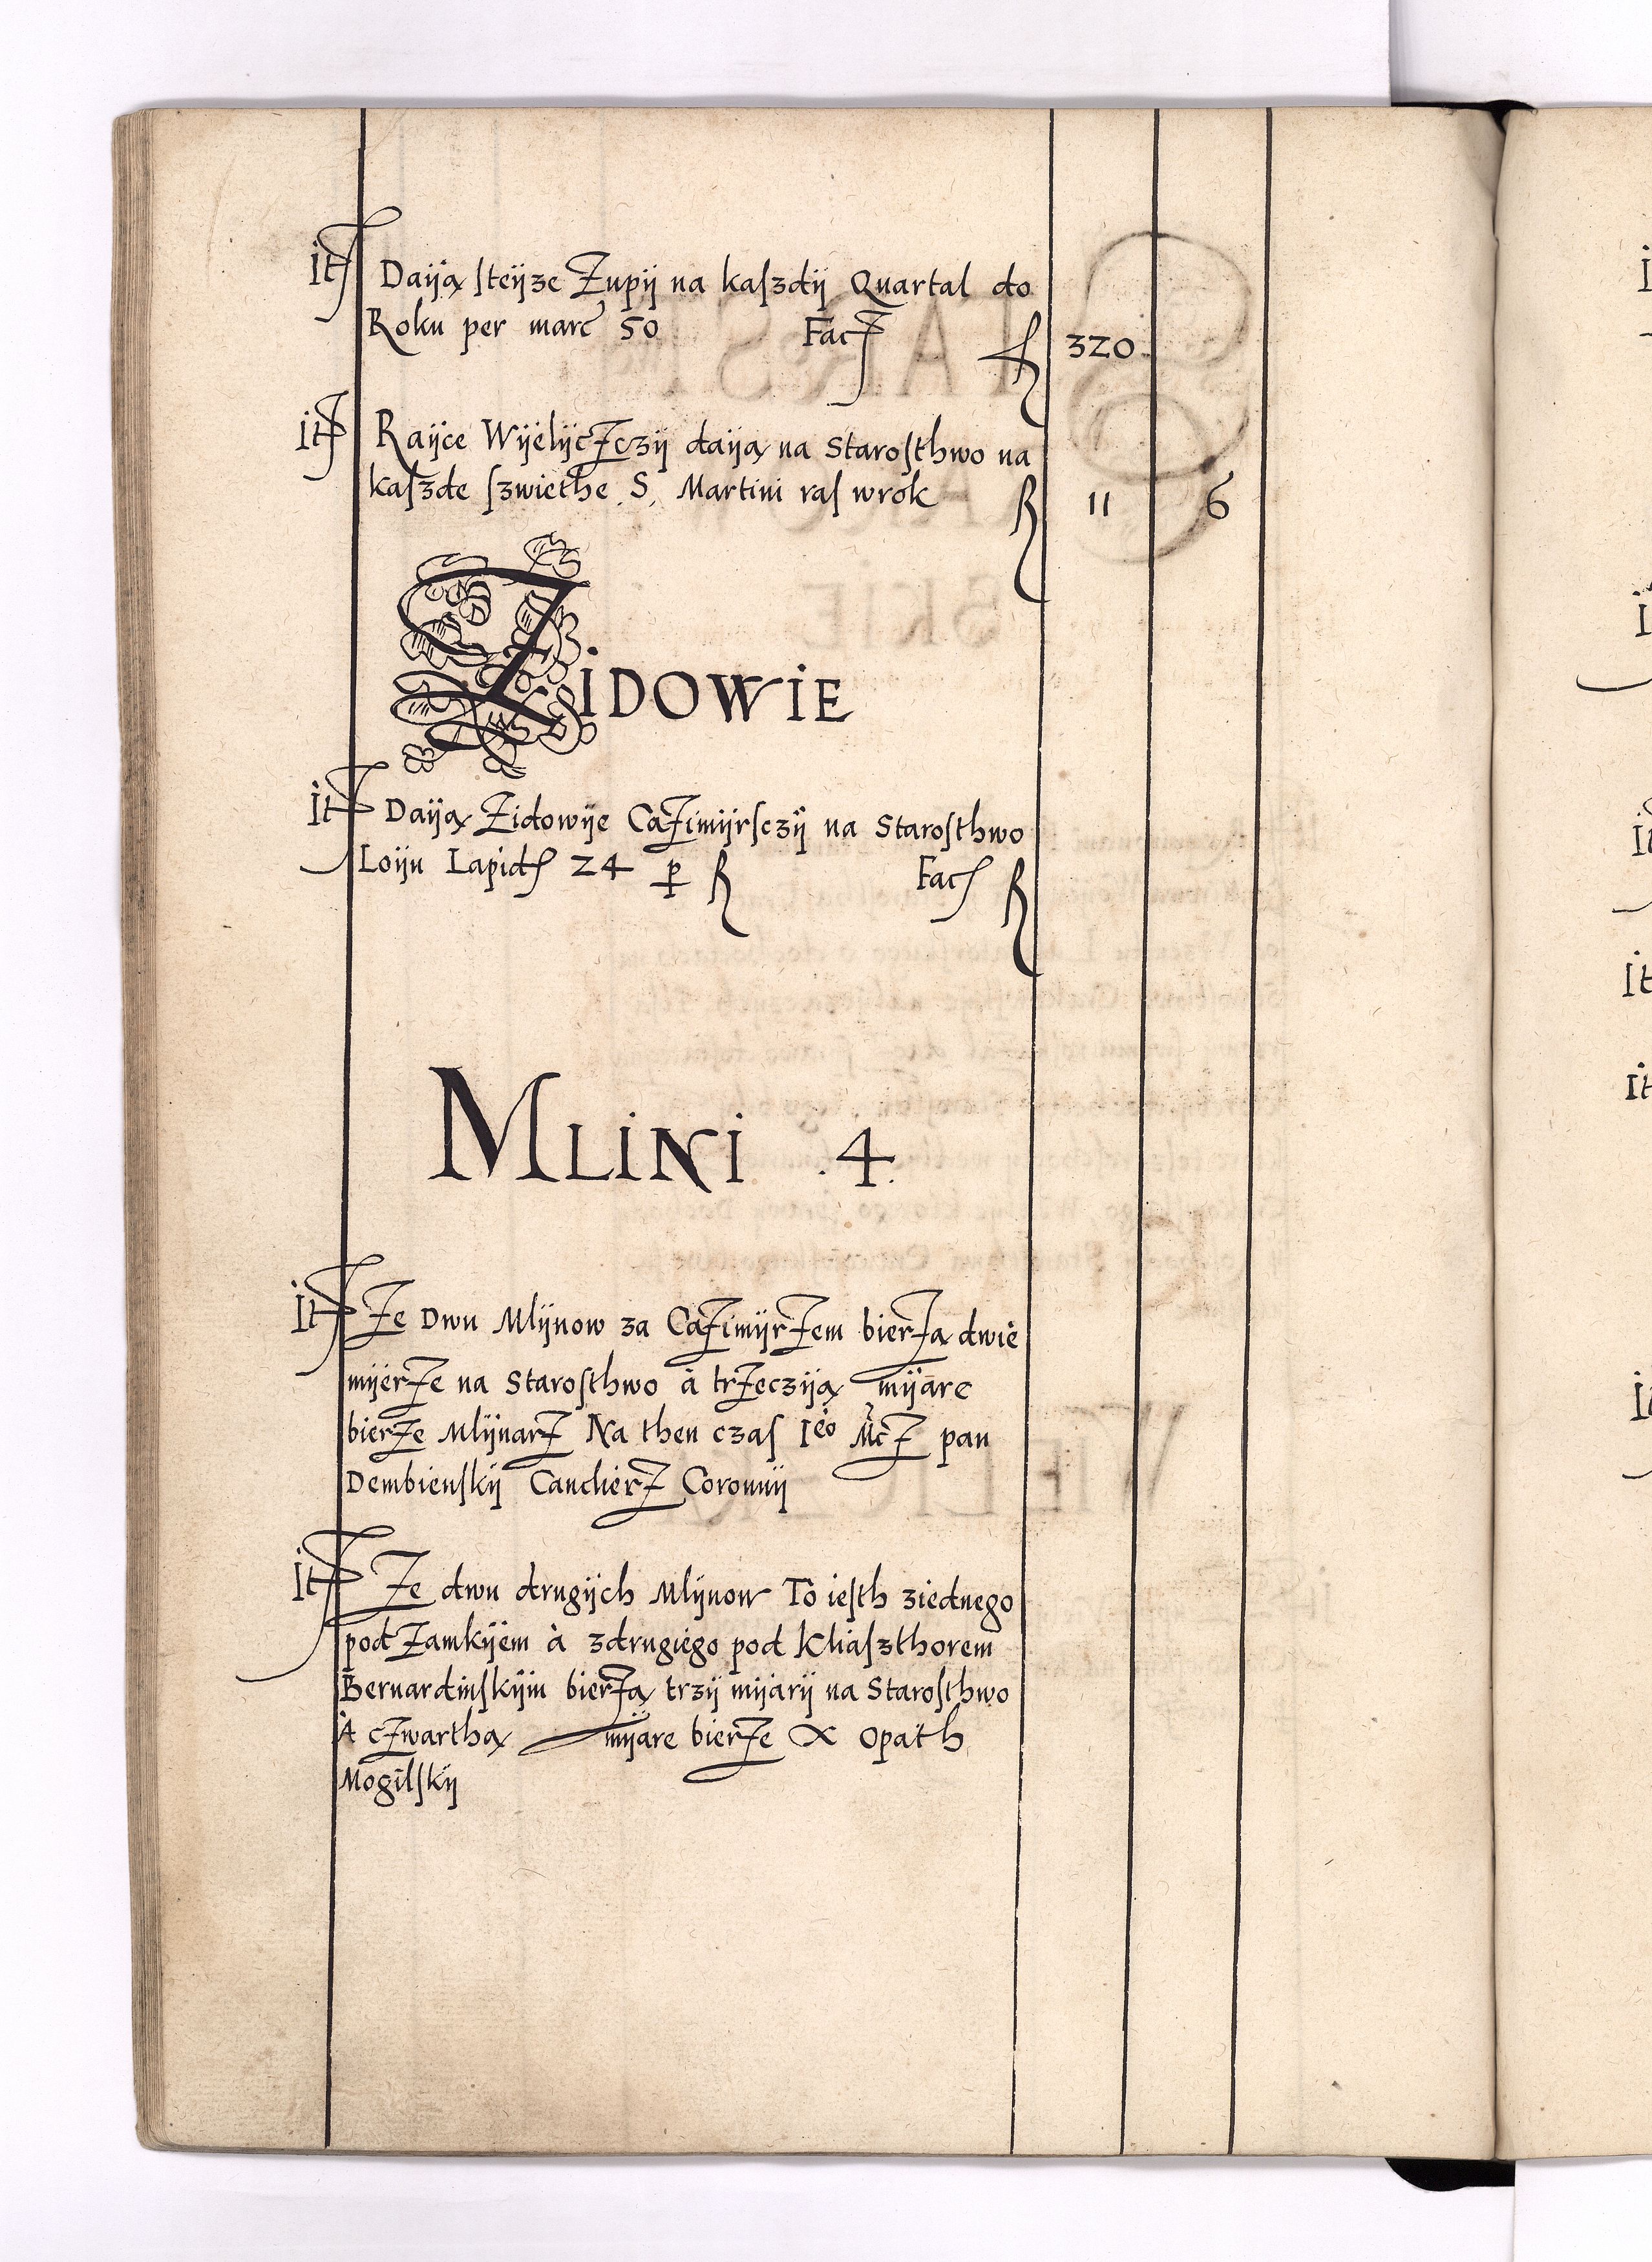 It Daiją steijże Żupij na każdij Quartal do
Roku per marc 50 Fac fl 320
It Raijce Wijelijcżczij daiją na Starosthwo na
kaszde szwiethe S. Martini ras wrok fl 11 6
ZIDOWIE
It Daiją Żidowije Cażimijrsczij na Starosthwo
Loiju Lapid 24 p fl Fac fl
MLINI .4.
It Ze Dwu Mlijnow za Cazimijrzem bierzą dwie
mijerze na Starosthwo à trzecziją mijare
bierze Mlijnarz Na then czas Ieo Mcz pan
Dembienskij Canclierz Coronnij
It Ze dwu drugijch Mlijnow To iesth ziednego
pod Zamkijem à zdrugiego pod Kliaszthorem
Bernardinskijm bierzą trzij mijarij na Starosthwo
A czwarthą mijare bierze X Opath
Mogilskij